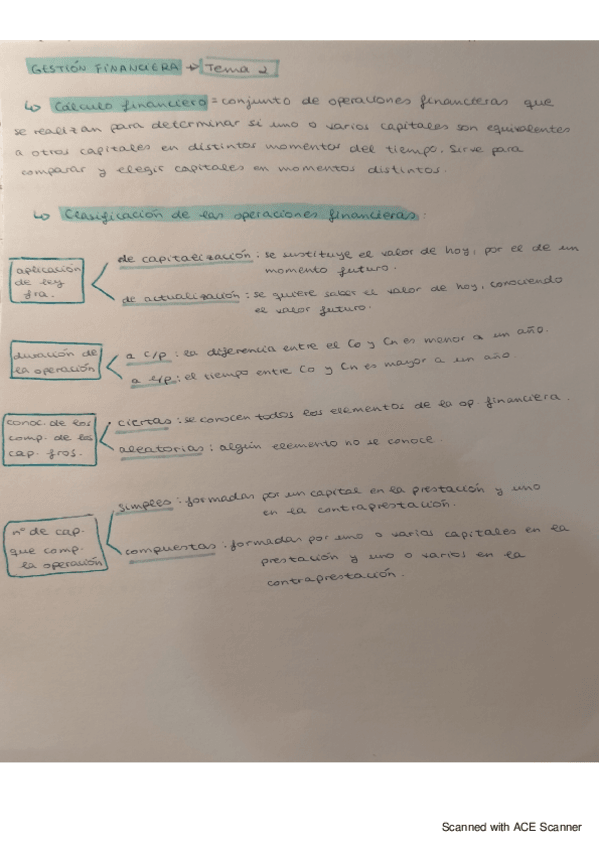 GESTIÓN FINANCIERA → Tema 2
↳ Cálculo financiero = conjunto de operaciones financieras que
se realizan para determinar si uno o varios capitales son equivalentes
a otros capitales en distintos momentos del tiempo. Sirve para
comparar y elegir capitales en momentos distintos.
↳ Clasificación de las operaciones financieras:
aplicación
de ley
fra.
de capitalización: se sustituye el valor de hoy, por el de un
momento futuro.
de actualización: se quiere saber el valor de hoy, conociendo
el valor futuro.
duración de
la operación
a c/p: la diferencia entre el Co y Cn es menor a un año.
a l/p: el tiempo entre Co y Cn es mayor a un año.
conoc. de los
comp. de los
cap. fros.
ciertas: se conocen todos los elementos de la op. financiera.
aleatorias: algún elemento no se conoce.
nº de cap.
que comp.
la operación
simples: formadas por un capital en la prestación y uno
en la contraprestación.
compuestas: formadas por uno o varios capitales en la
prestación y uno o varios en la
contraprestación.
Scanned with ACE Scanner